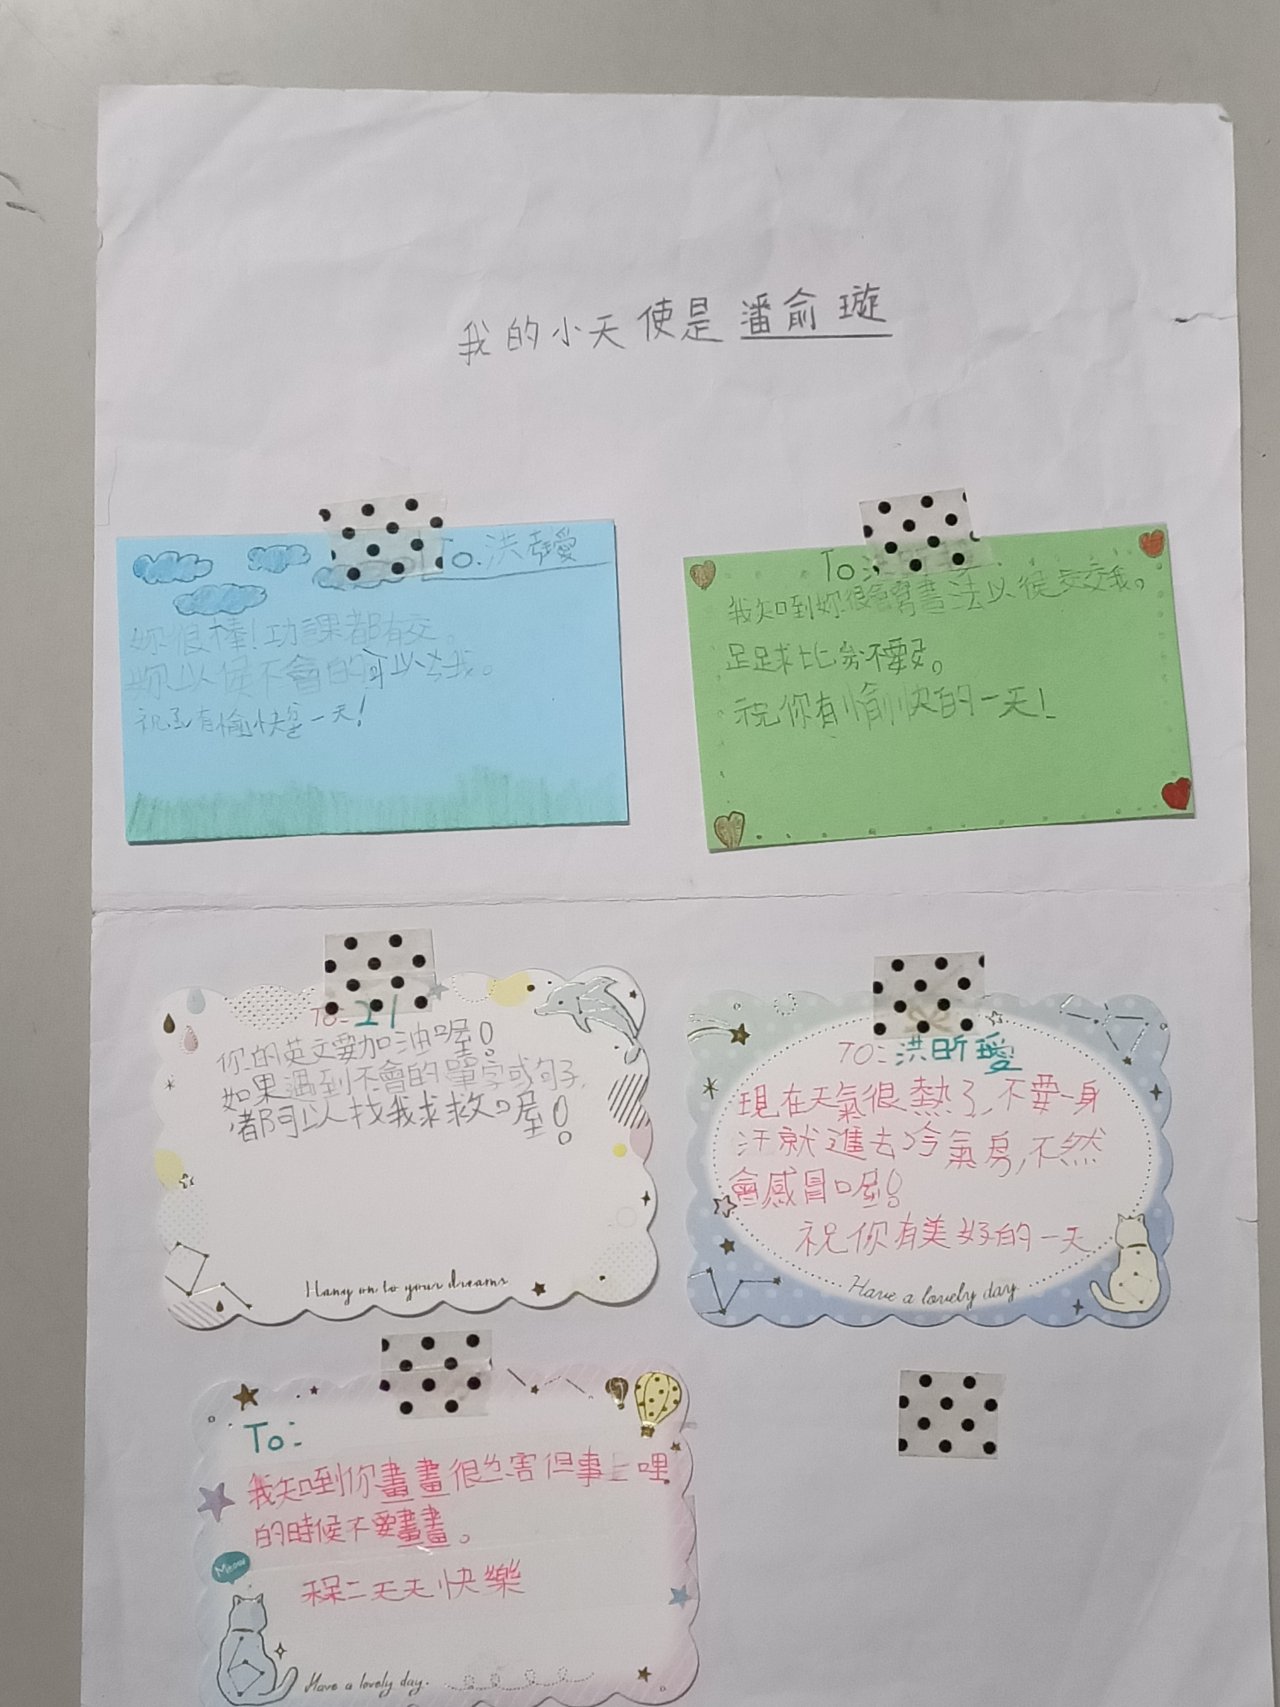 我的小天使是潘俞璇
To.洪
妳很棒!功課都有交。
妳以後不會的可以
祝 有愉快 一天!
To
我知到妳很會寫書法以後交交我。
足球比 不要
祝你有愉快的一天!
To: 21
你的英文要加油喔!
如果遇到不會的單字或句子,
都可以找我求救喔!
Hang on to your dreams
TO:洪昕璦
現在天氣很熱了,不要一身
汗就進去冷氣房,不然
會感冒喔!
祝你有美好的一天
Have a lovely day
To:
我知到你畫畫很 害但事上哩
的時候不要畫畫。
天天快樂
Meow
Have a lovely day.